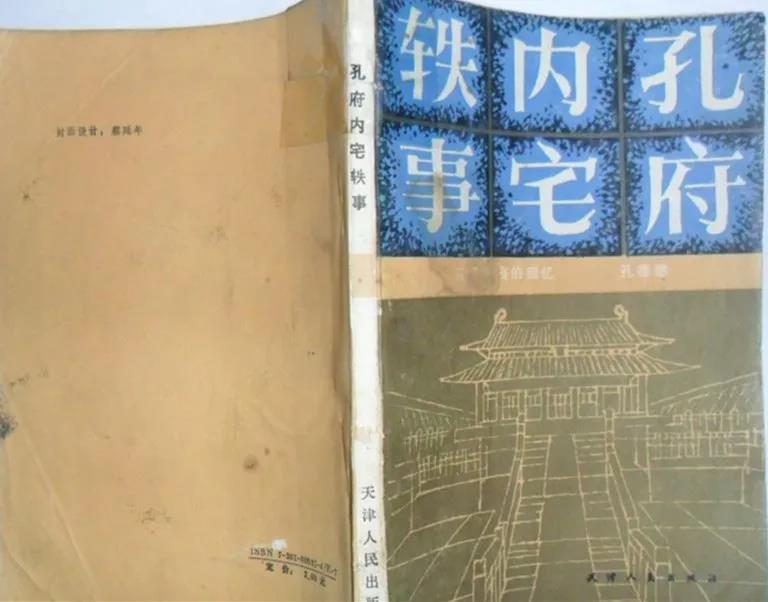 孔府
内宅
轶事
的回忆
孔德懋
天津人民出版社
孔府内宅轶事
天津人民出版
封面设计：蔡延年
定价：
元